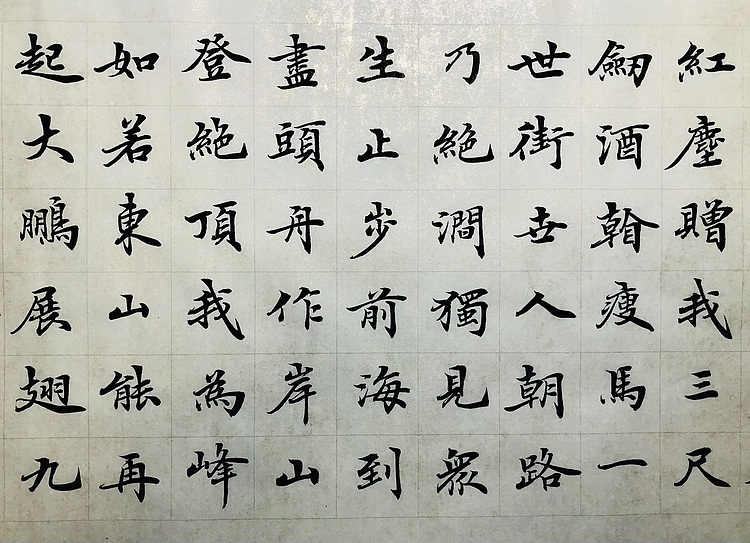 紅塵贈我三尺
劒酒瘦馬一
世街世人朝路
乃絶澗獨見衆
生止步前海到
盡頭舟作岸山
登絶頂我為峰
如若東山能再
起大鵬展翅九